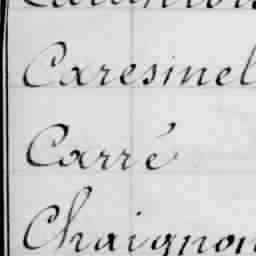 Caresinel
Carré
Chaignon